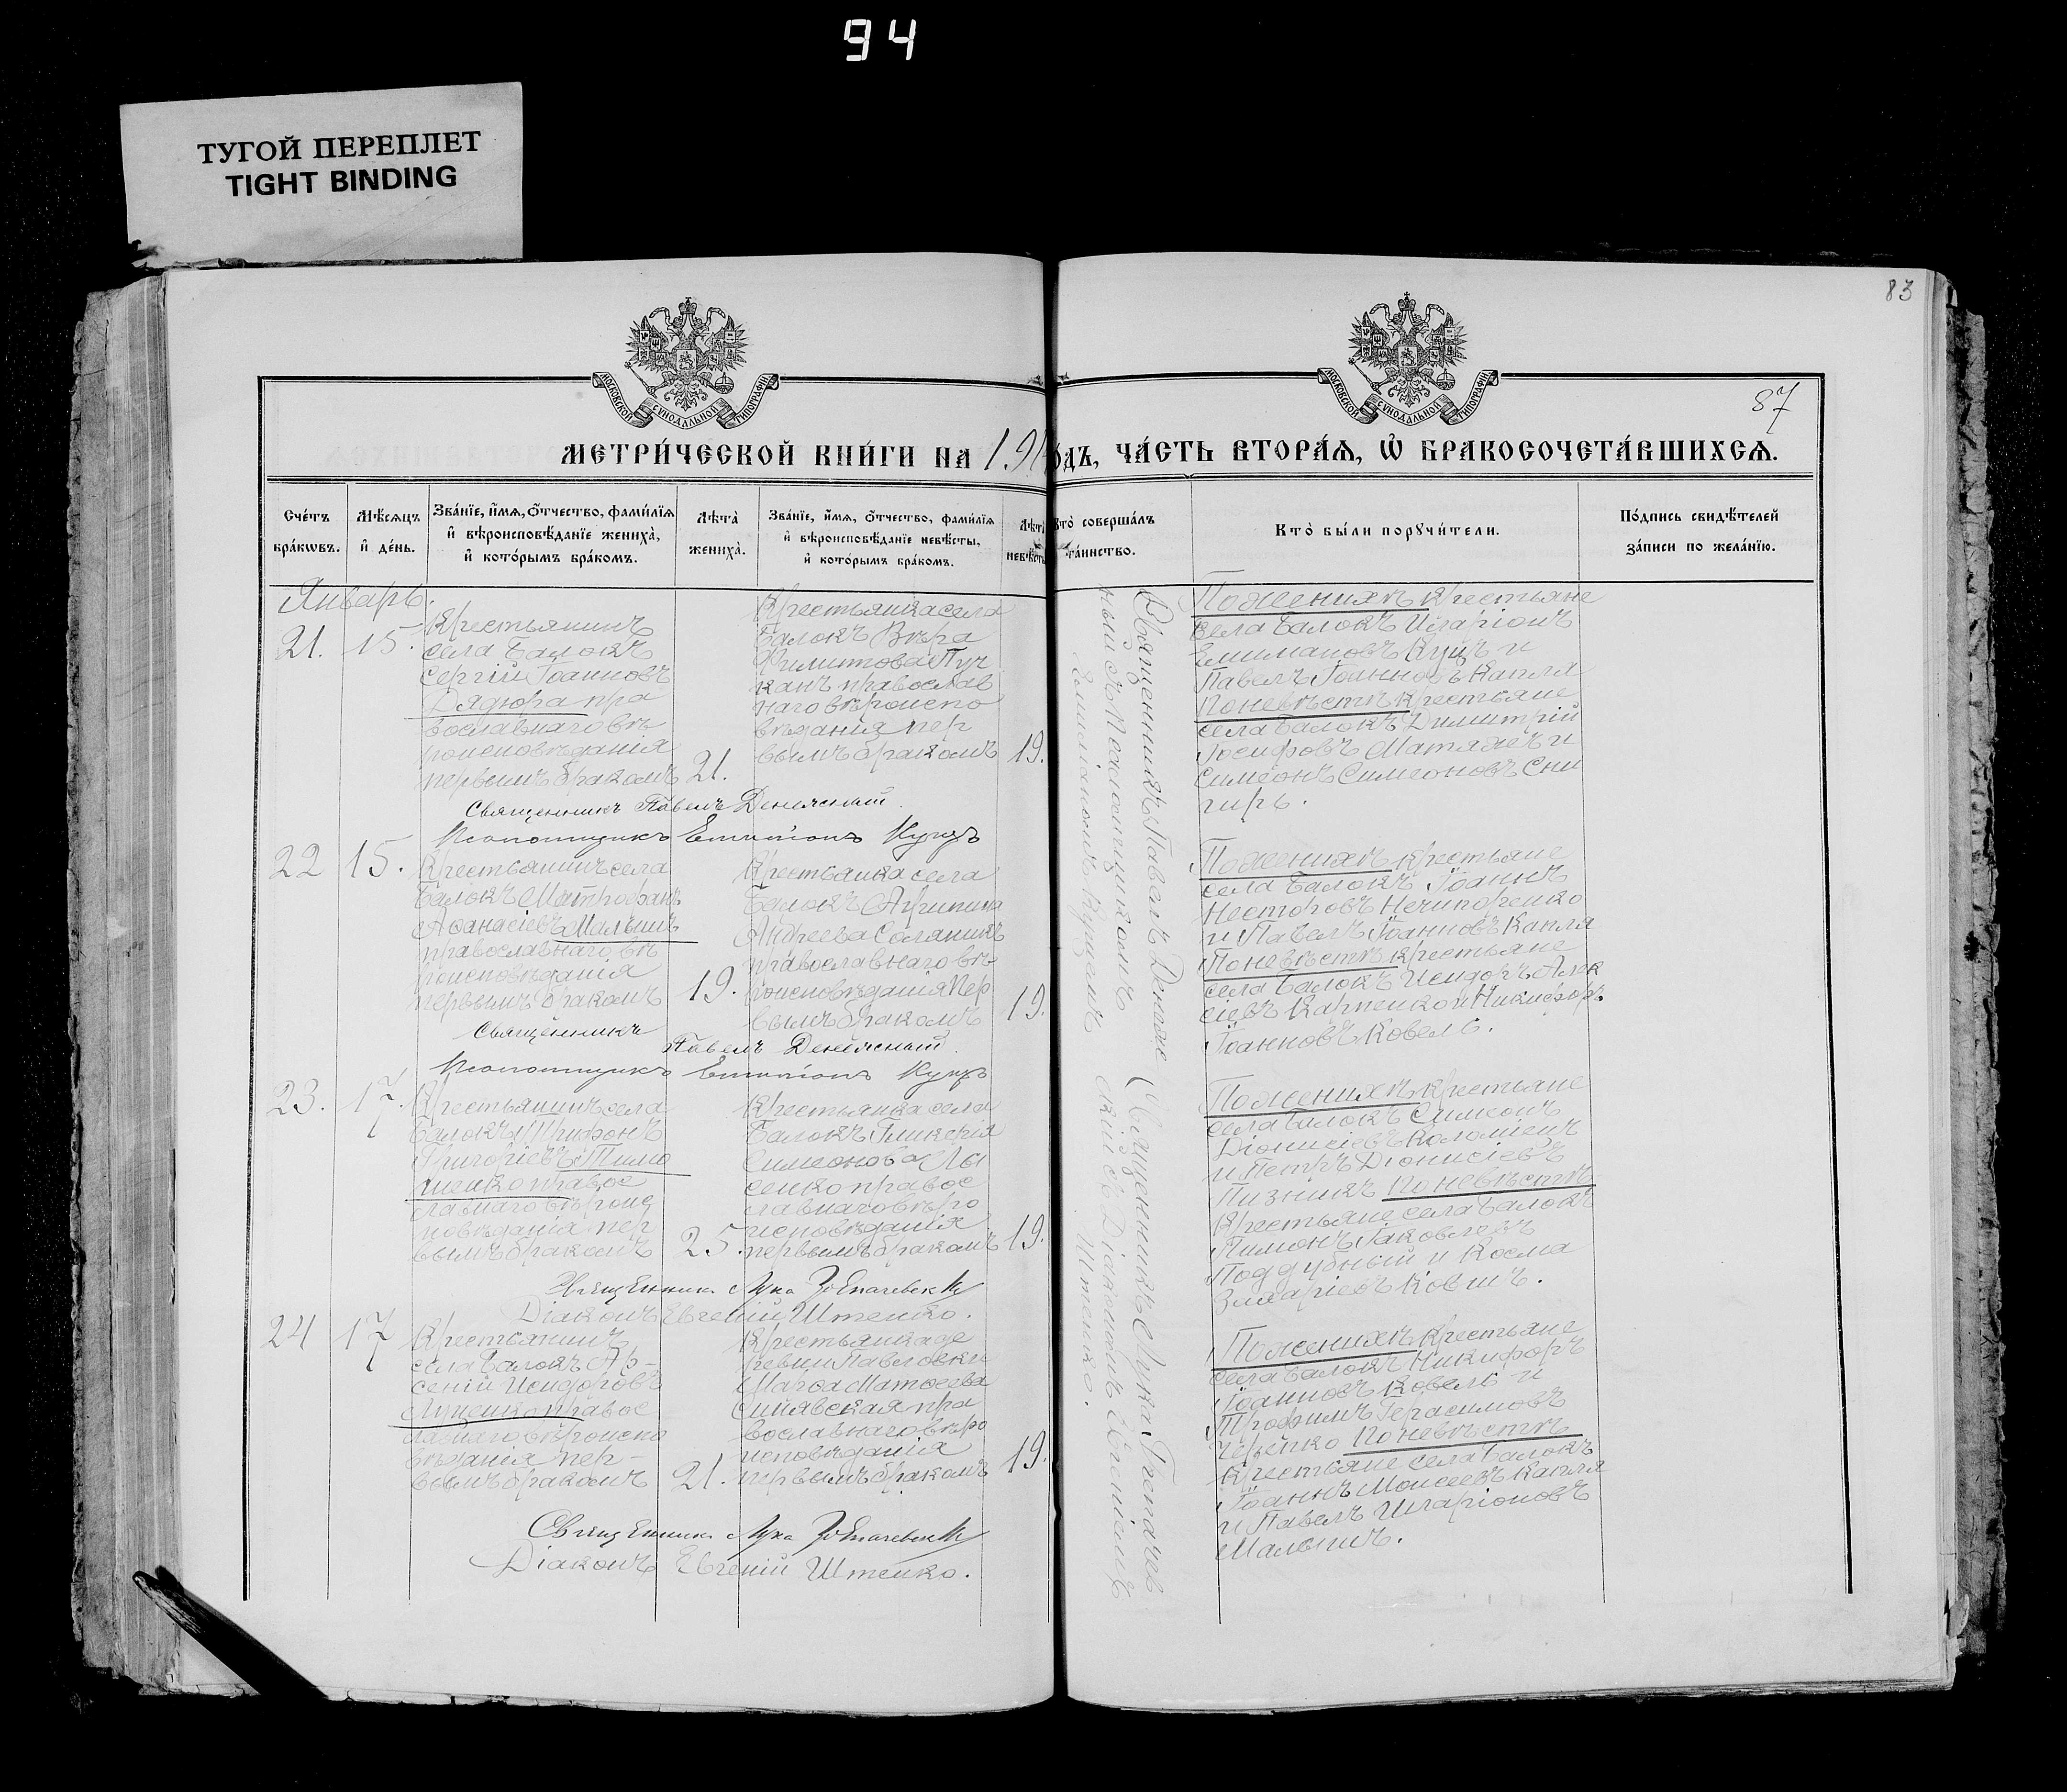 94
ТУГОЙ ПЕРЕПЛЕТ
TIGHT BINDING
83
МОСКОВСКОЙ СУНОДАЛЬНОЙ ТИПОГРАФІИ
МОСКОВСКОЙ СУНОДАЛЬНОЙ ТИПОГРАФІИ
87
МЕТРИ́ЧЕСКОЙ КНИ́ГИ НА 191 О́ДЪ, ЧА́СТЬ ВТОРА́Ѧ, Ѡ҆ БРАКОСОЧЕТА́ВШИХСѦ.
Сче́тъ бра́кѡвъ.
Мѣ́сѧцъ и҆ де́нь.
Зва́нїе, и҆́мѧ, ѻ҆́тчество, фами́лїѧ
и҆ вѣроисповѣ́данїе жениха̀,
и҆ кото́рымъ бра́комъ.
Лѣта̀ жениха̀.
Зва́нїе, и҆́мѧ, ѻ҆́тчество, фами́лїѧ
и҆ вѣроисповѣ́данїе невѣ́сты,
и҆ кото́рымъ бра́комъ.
Лѣта
невѣсты
кто̀ соверша́лъ
та́инство.
Кто̀ бы́ли порꙋчи́тели.
По́дпись свидѣ́телей
за́писи по жела́нїю.
Январь.
21.
15.
Крестьянинъ
села Балокъ
Сергій Іоанновъ
Дядюра пра
вославнаго вѣ
роисповѣданія
первымъ бракомъ
21.
Крестьянка села
Балокъ Вѣра
Филиппова Пуч
канъ православ
наго вѣроиспо
вѣданія пер
вымъ бракомъ
19.
По женихѣ крестьяне
села Балокъ Иларіонъ
Куцъ и
Павелъ Іоанновъ Капля
По невѣстѣ крестьяне
села Балокъ Димитрій
Іосифовъ Матяжъ и
Симеонъ Симеоновъ Сни
гирь.
Священникъ Павелъ
Псаломщикъ Емиліонъ Куцъ
22
15.
Крестьянинъ села
Балокъ Митрофанъ
Аѳанасіевъ Малышъ
православнаго вѣ
роисповѣданія
первымъ бракомъ
19.
Крестьянка села
Балокъ Агрипина
Андреева Солянникъ
православнаго вѣ
роисповѣданія пер
вымъ бракомъ
19.
По женихѣ крестьяне
села Балокъ Іоаннъ
Несторовъ Нечипоренко
и Павелъ Іоанновъ Капля
По невѣстѣ крестьяне
села Балокъ Исидоръ Алек
сіевъ Карпенко и Никифоръ
Іоанновъ Ковель.
Священникъ
Павелъ
Псаломщикъ Емиліонъ Куцъ
23.
17.
Крестьянинъ села
Балокъ Трифонъ
Григоріевъ Тимо
шенко правос
лавнаго вѣроис
повѣданія пер
вымъ бракомъ
25.
Крестьянка села
Балокъ Гликерія
Симеонова Лы
сенко правос
лавнаго вѣро
исповѣданія
первымъ бракомъ
19.
По женихѣ крестьяне
села Балокъ Симеонъ
Діонисіевъ Коломіецъ
и Петръ Діонисіевъ
Пизникъ По невѣстѣ
Крестьяне села Балокъ
Пименъ Іаковлевъ
Поддубный и Косма
Ковшъ.
Священникъ Лука
Діаконъ Евгеній Штепко.
24
17
Крестьянинъ
села Балокъ Ар-
сеній Исидоровъ
Луценко правос
лавнаго вѣроиспо
вѣданія пер-
вымъ бракомъ
21.
Крестьянка де
ревни Павловки
Марѳа Матѳеева
Синявская пра
вославнаго вѣро
исповѣданія
первымъ бракомъ
19.
По женихѣ крестьяне
села Балокъ Никифоръ
Іоанновъ Ковель и
Трофимъ Герасимовъ
По невѣстѣ
крестьяне села Балокъ
Іоаннъ Моисеевъ Капля
и Павелъ Иларіоновъ
Малышъ.
Священникъ Лука
Діаконъ Евгеній Штепко.
Священникъ Павелъ
ный съ Псаломщикомъ
Емиліаномъ Куцемъ
Священникъ Лука
скій съ Діакономъ Евгеніемъ
Штепко.